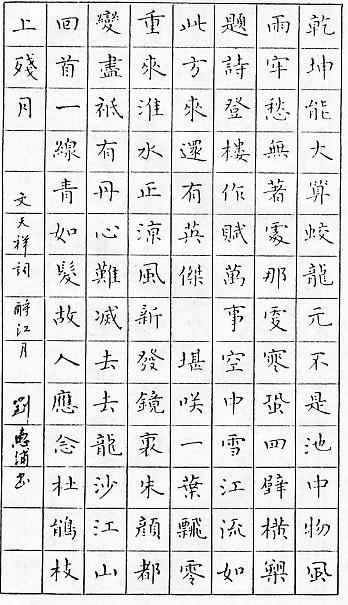 乾坤能大算蛟龍元不是池中物風
雨牢愁無著處那更寒蛩四壁橫槊
題詩登樓作賦萬事空中雪江流如
此方來還有英傑 堪咲一葉飄零
重來淮水正涼風新發鏡裏朱顏都
變盡祗有丹心難滅去去龍沙江山
回首一線青如髮故人應念杜鵑枝
上殘月
文天祥詞 酹江月 劉惠浦書